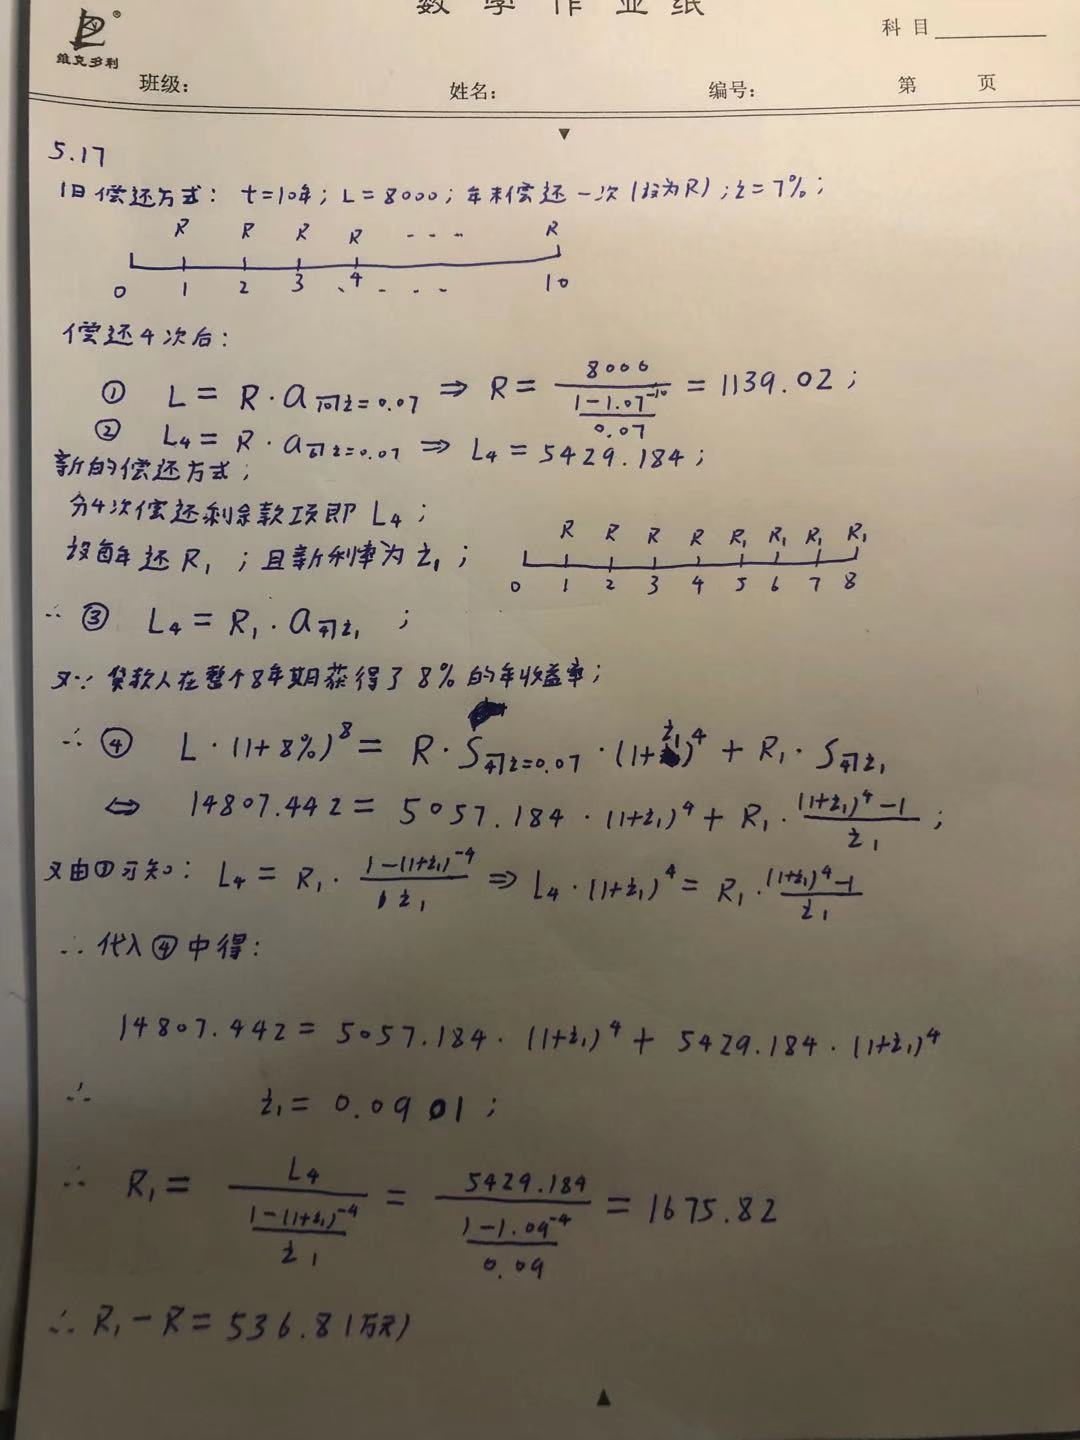 数学作业纸
科目
维克多利
班级: 姓名: 编号: 第 页
5.17
旧偿还方式: t=10年; L=8000; 年末偿还一次(设为R); i=7%;
R R R R ... R
0 1 2 3 4 ... 10
偿还4次后:
① L = R·a₁₀┐i=0.07 ⇒ R = 8000/((1-1.07⁻¹⁰)/0.07) = 1139.02;
② L₄ = R·a₆┐i=0.07 ⇒ L₄ = 5429.184;
新的偿还方式;
分4次偿还剩余款项即 L₄;
设每年还 R₁; 且新利率为 i₁;
R R R R R₁ R₁ R₁ R₁
0 1 2 3 4 5 6 7 8
∴ ③ L₄ = R₁·a₄┐i₁ ;
又∵ 贷款人在整个8年期获得了 8% 的年收益率;
∴ ④ L·(1+8%)⁸ = R·S₄┐i=0.07·(1+i₁)⁴ + R₁·S₄┐i₁
⇔ 14807.442 = 5057.184·(1+i₁)⁴ + R₁·((1+i₁)⁴-1)/i₁ ;
又由③可知: L₄ = R₁·(1-(1+i₁)⁻⁴)/i₁ ⇒ L₄·(1+i₁)⁴ = R₁·((1+i₁)⁴-1)/i₁
∴ 代入④中得:
14807.442 = 5057.184·(1+i₁)⁴ + 5429.184·(1+i₁)⁴
∴ i₁ = 0.0901;
∴ R₁ = L₄/((1-(1+i₁)⁻⁴)/i₁) = 5429.184/((1-1.09⁻⁴)/0.09) = 1675.82
∴ R₁-R = 536.8(万元)